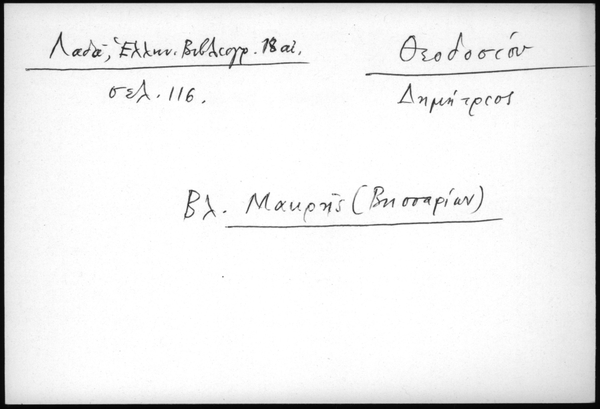 Λαδᾶ, Ἑλλην. Βιβλιογρ. 18 αἰ.
σελ. 116.
Θεοδοσίου
Δημήτριος
Βλ. Μακρῆς (Βησσαρίων)